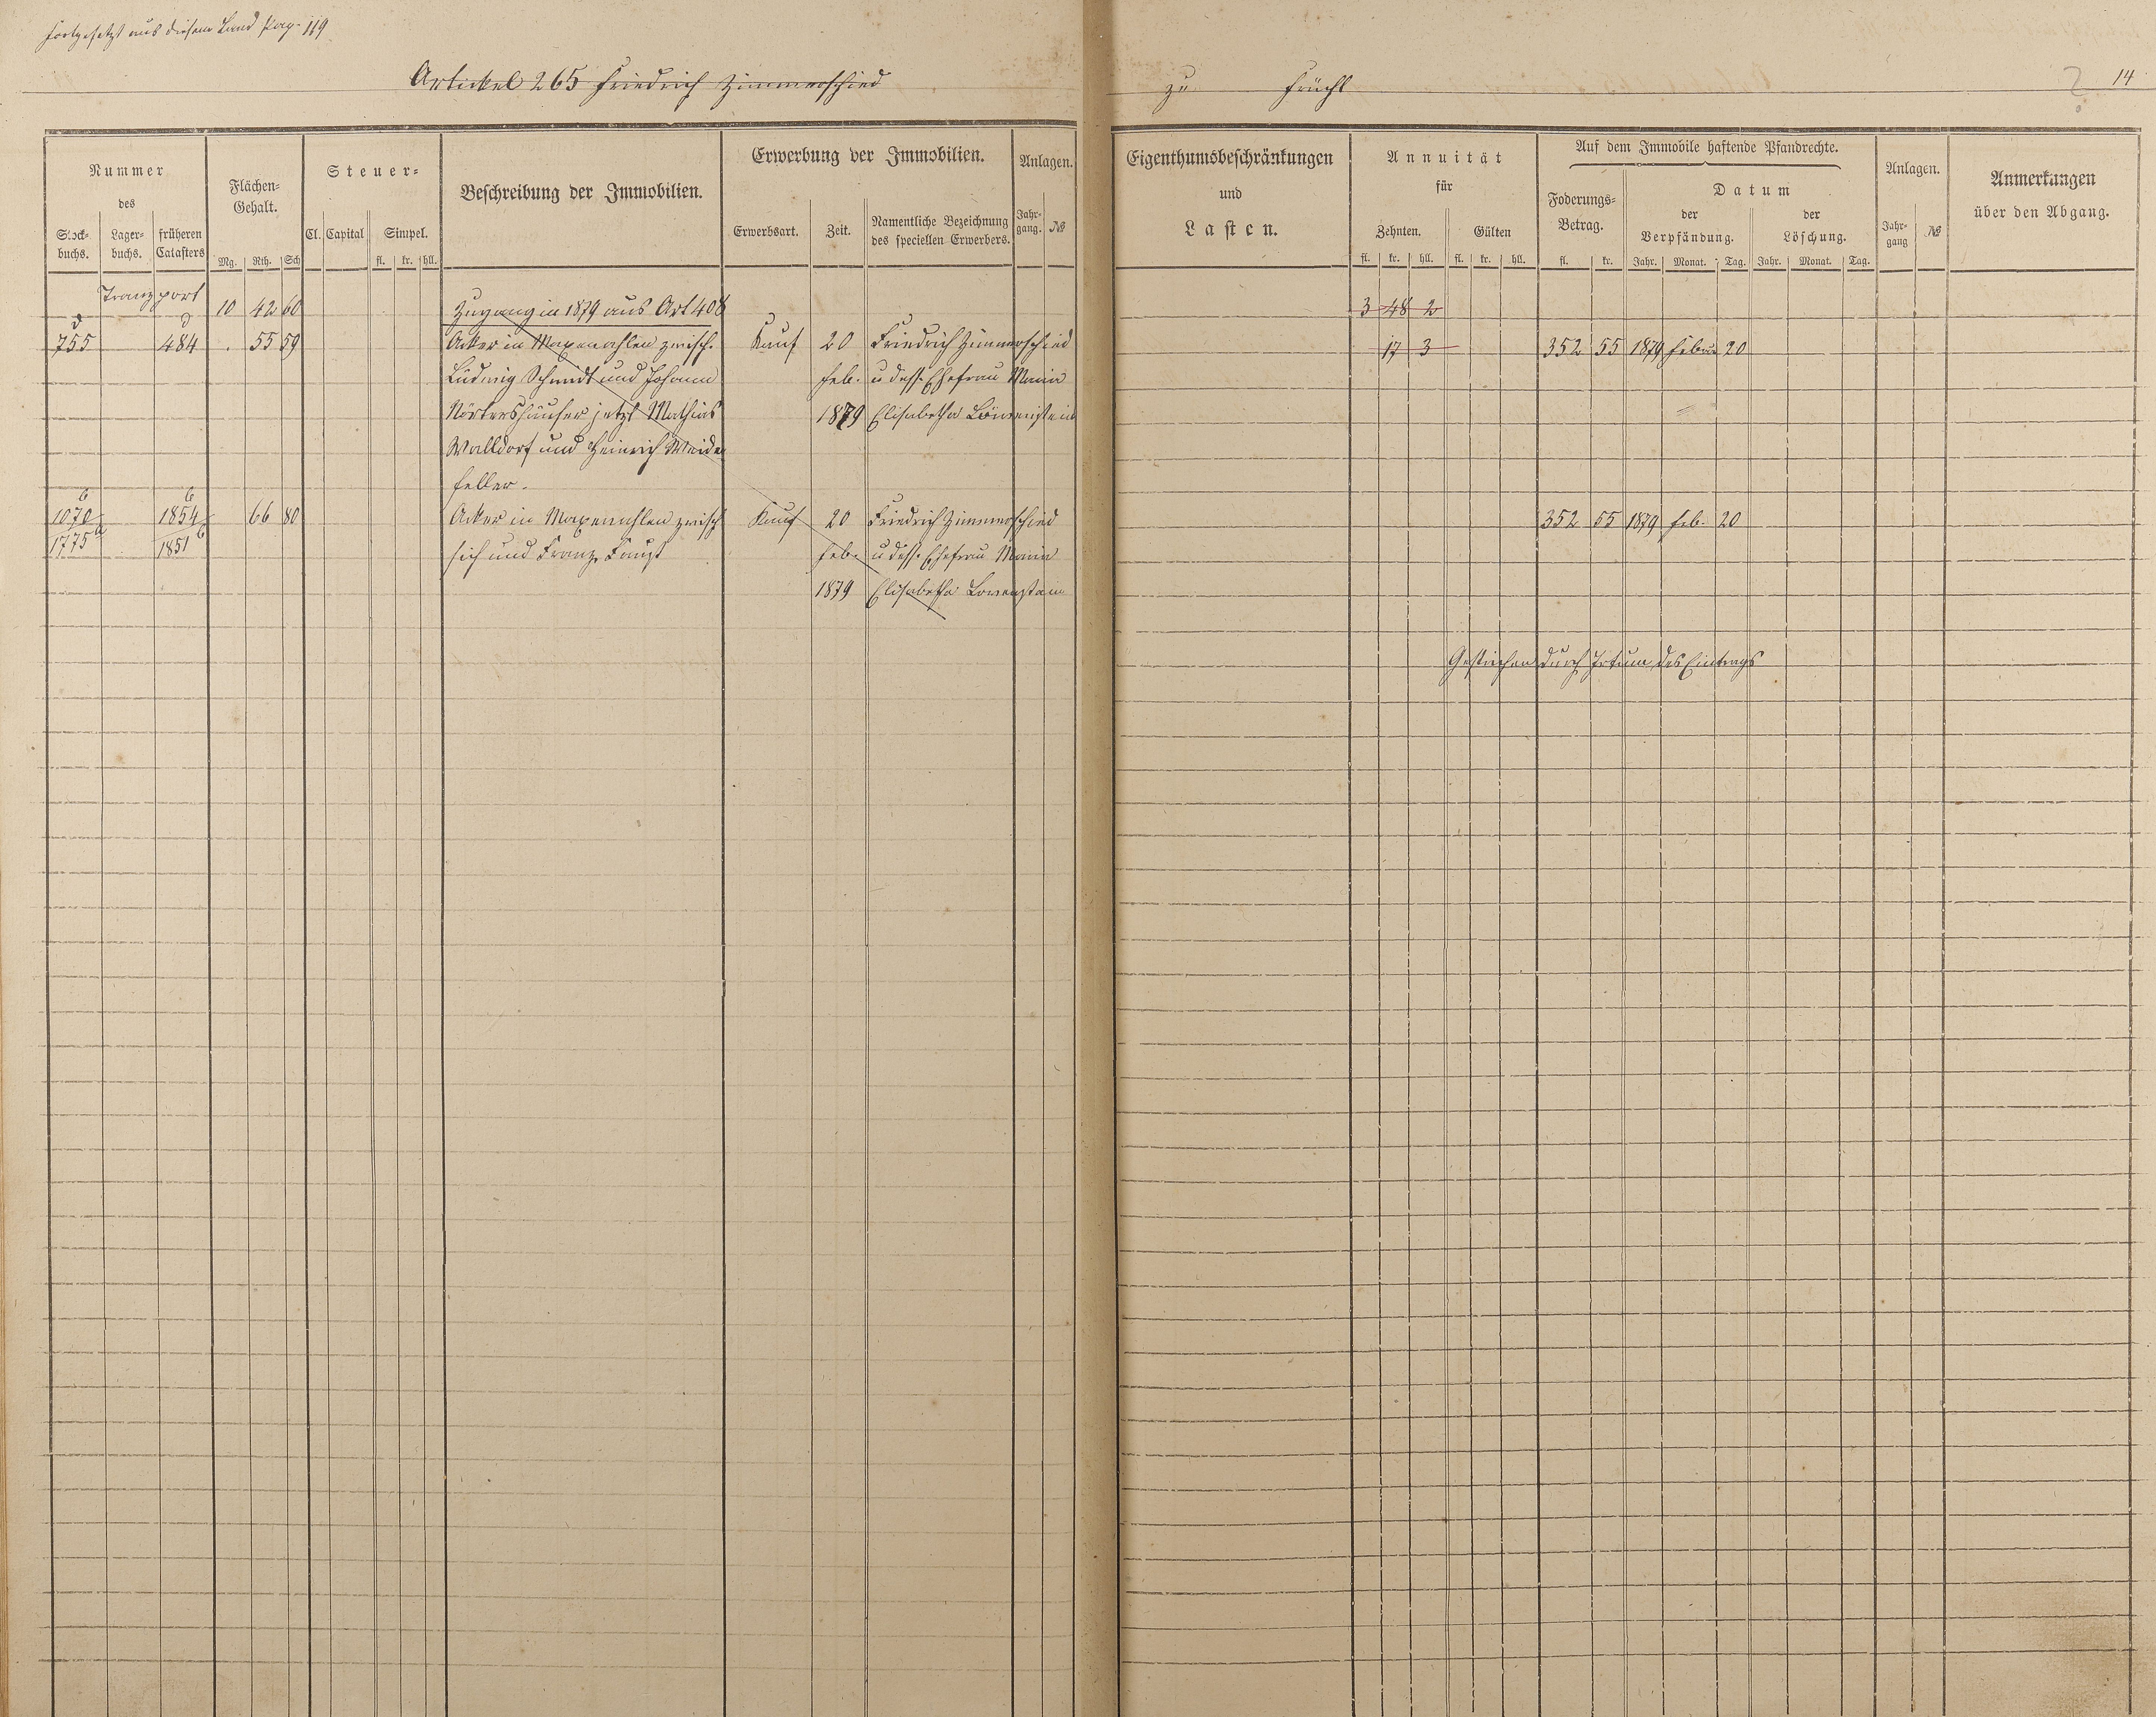 fortgesetzt aus diesem Band Pag. 119
Artickel 265 Friedrich Zimmerschied
zu Frücht
14
Nummer
des
Stock-
buchs.
Lager-
buchs.
früheren
Catasters
Flächen-
Gehalt.
Mg. Rth. Sch
Steuer-
Cl. Capital Simpel.
fl. kr. hll.
Beschreibung der Immobilien.
Erwerbung der Immobilien.
Erwerbsart. Zeit.
Namentliche Bezeichnung
des speciellen Erwerbers.
Anlagen.
Jahr-
gang. №
Eigenthumsbeschränkungen
und
Lasten.
Annuität
für
Zehnten. Gülten
fl. kr. hll. fl. kr. hll.
Auf dem Immobile haftende Pfandrechte.
Foderungs-
Betrag.
fl. kr.
Datum
der
Verpfändung.
der
Löschung.
Jahr. Monat. Tag. Jahr. Monat. Tag.
Anlagen.
Jahr-
gang №
Anmerkungen
über den Abgang.
Tranzport 10 42 60 Zugang in 1879 aus Art 408 3 48 2
d d
755 484 . 55 59 Acker in Maxenahlen zwisch. Kauf 20 Friedrich Zimmerschied 17 3 352 55 1879 Febr 20
Ludwig Schmidt und Johann Feb. u dess. Ehefrau Maria
Nörtershäuser jetzt Mathias 1879 Elisabetha Löwenstein
Walldorf und Heinrich Weiden
feller.
6 6
1070 1854 66 80 Acker in Maxenahlen zwisch Kauf 20 Friedrich Zimmerschied 352 55 1879 Feb. 20
1775 a 1851 b sich und Franz Faust Feb. u dess. Ehefrau Maria
1879 Elisabetha Lowenstein
Gestrichen durch Irtum des Eintrags